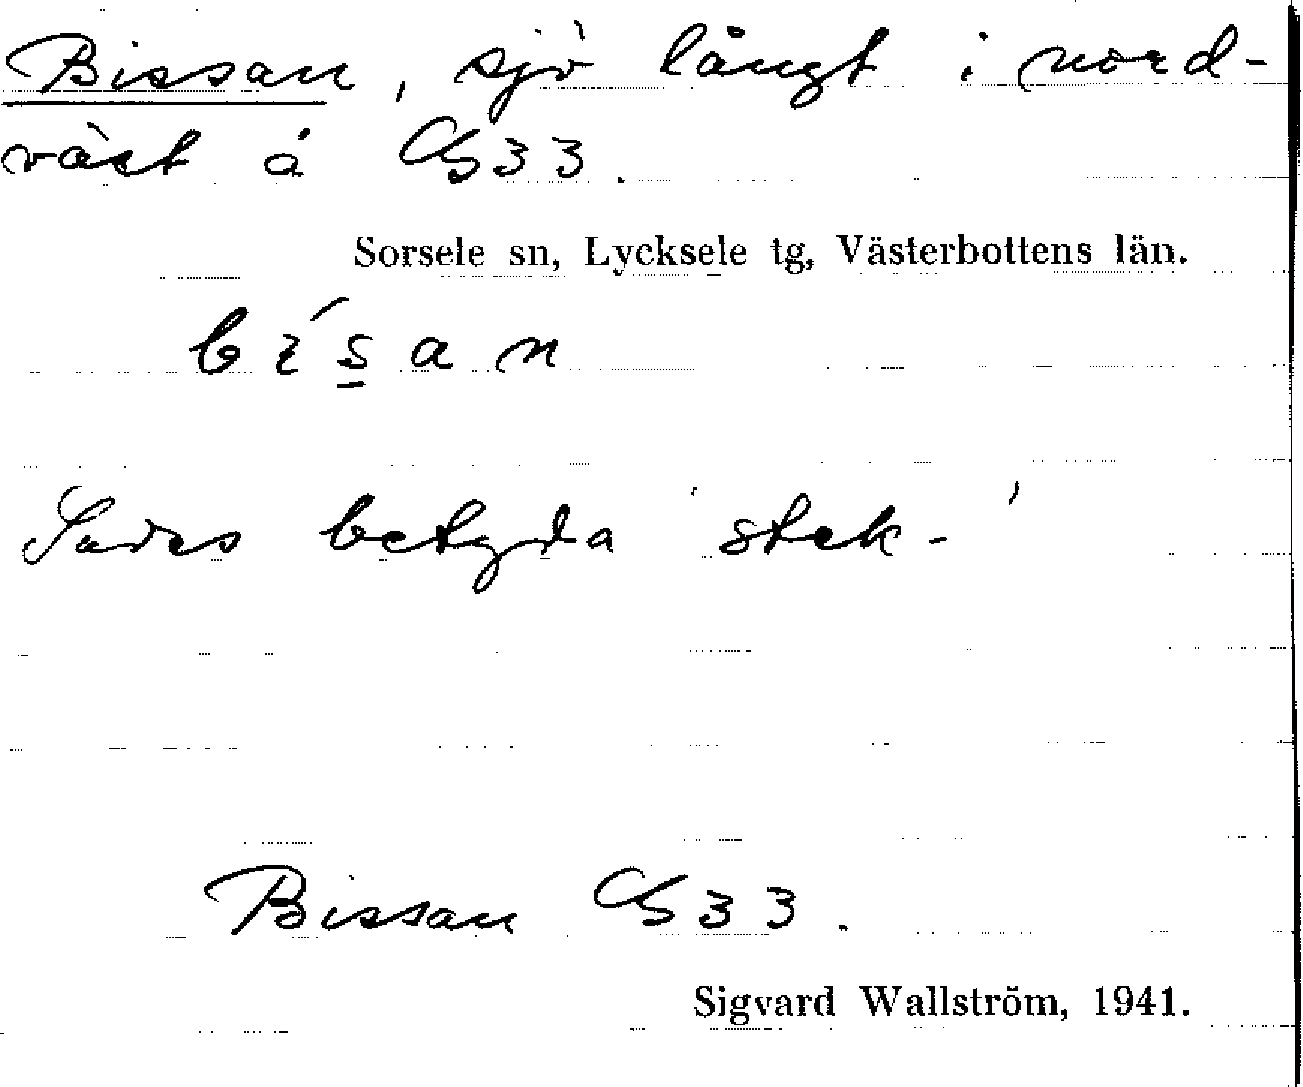 Bissan, sjö långt i nord-
väst å GS33.
Sorsele sn, Lycksele tg, Västerbottens län.
bi´s̲an
Sades betyda 'stek-'
Bissan GS33.
Sigvard Wallström, 1941.